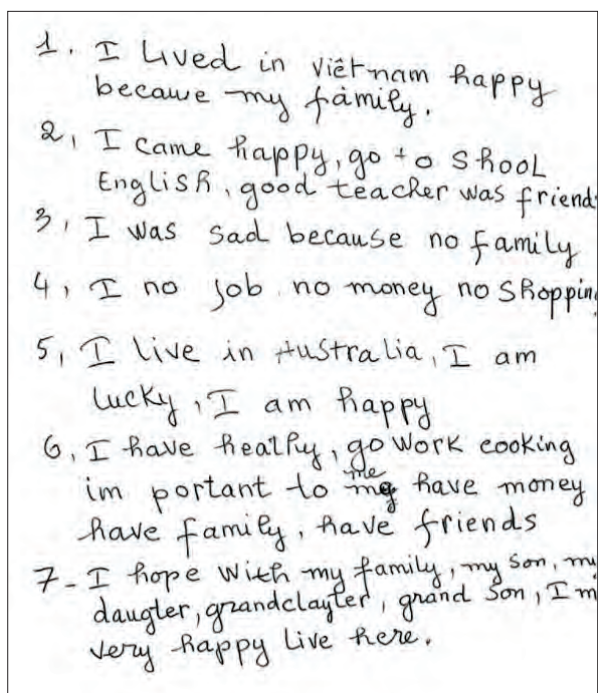 1. I Lived in Viêtnam happy
becawe my fàmily.
2, I came happy, go to ShooL
EngliSh, good teacher was friend
3, I was sad because no family
4, I no job no money no Shoppin
5, I live in Australia, I am
lucky, I am happy
6, I have healhy, go work cooking
im portant to me have money
have family, have friends
7- I hope with my family, my son, my
daugter, grandclayter, grand son, I m
very happy Live here.